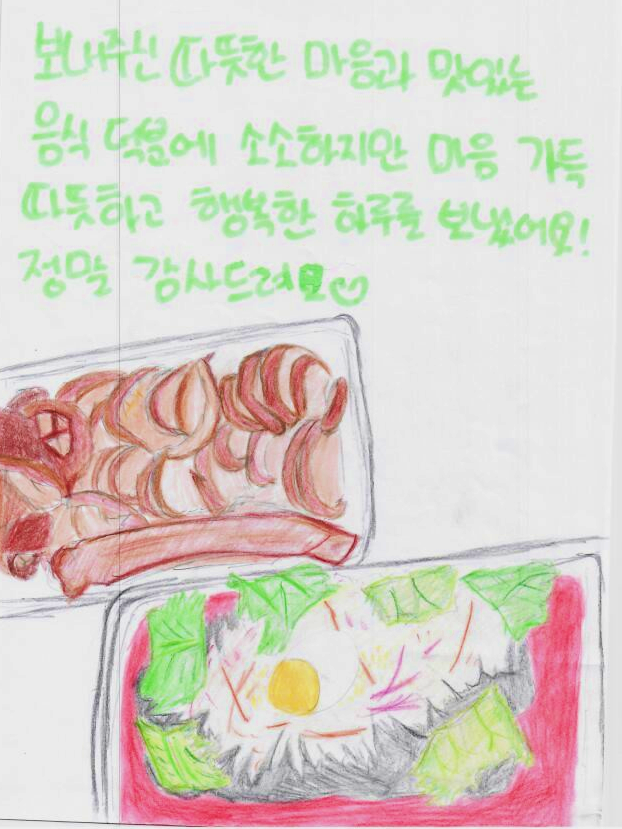 보내주신 따뜻한 마음과 맛있는
음식 덕분에 소소하지만 마음 가득
따뜻하고 행복한 하루를 보냈어요!
정말 감사드려요♡